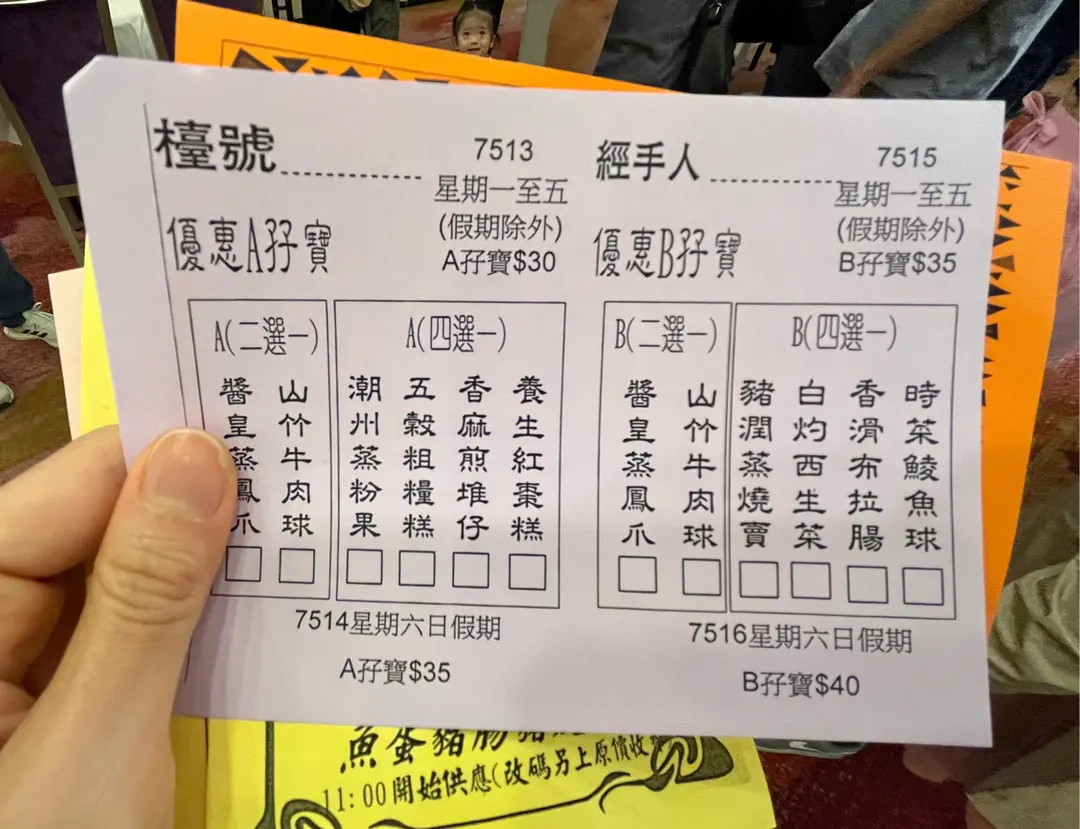 檯號
7513
星期一至五
(假期除外)
優惠A孖寶
A孖寶$30
A(二選一)
醬皇蒸鳳爪
山竹牛肉球
A(四選一)
潮州蒸粉果
五穀粗糧糕
香麻煎堆仔
養生紅棗糕
7514星期六日假期
A孖寶$35
經手人
7515
星期一至五
(假期除外)
優惠B孖寶
B孖寶$35
B(二選一)
醬皇蒸鳳爪
山竹牛肉球
B(四選一)
豬潤蒸燒賣
白灼西生菜
香滑布拉腸
時菜鯪魚球
7516星期六日假期
B孖寶$40
魚蛋豬腸
11:00開始供應(改碼另上原價收